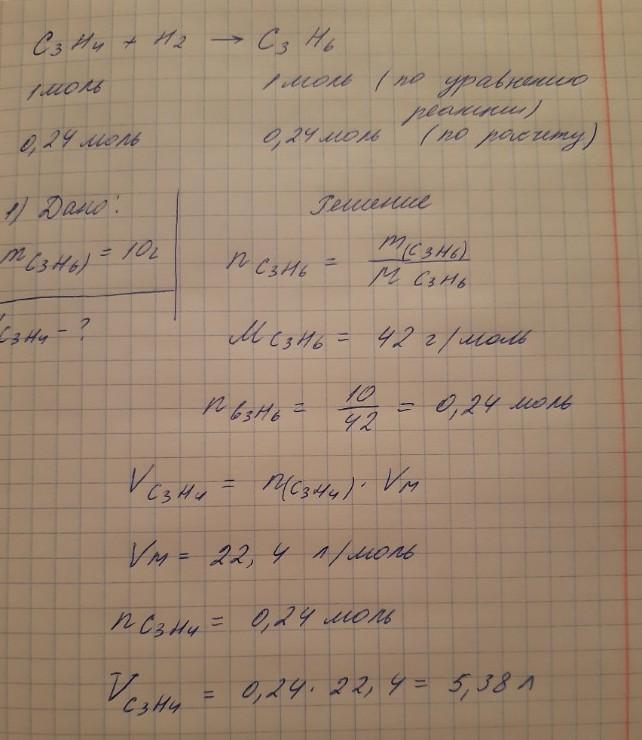 C3H4 + H2 → C3H6
1 моль 1 моль (по уравнению
реакции)
0,24 моль 0,24 моль (по расчету)
1) Дано: Решение
m(C3H6) = 10г n C3H6 = m(C3H6) / M C3H6
V C3H4 - ? M C3H6 = 42 г/моль
n C3H6 = 10/42 = 0,24 моль
V C3H4 = n(C3H4) · Vm
Vm = 22,4 л/моль
n C3H4 = 0,24 моль
V C3H4 = 0,24 · 22,4 = 5,38 л